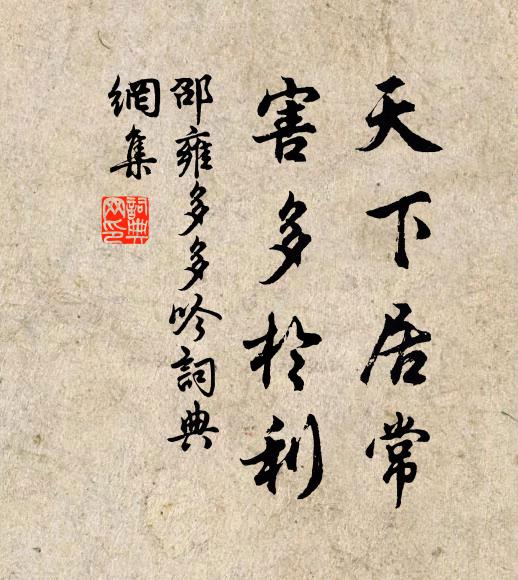 天下居常
害多於利
邵雍多多吟詞典
網集
詞典
网印